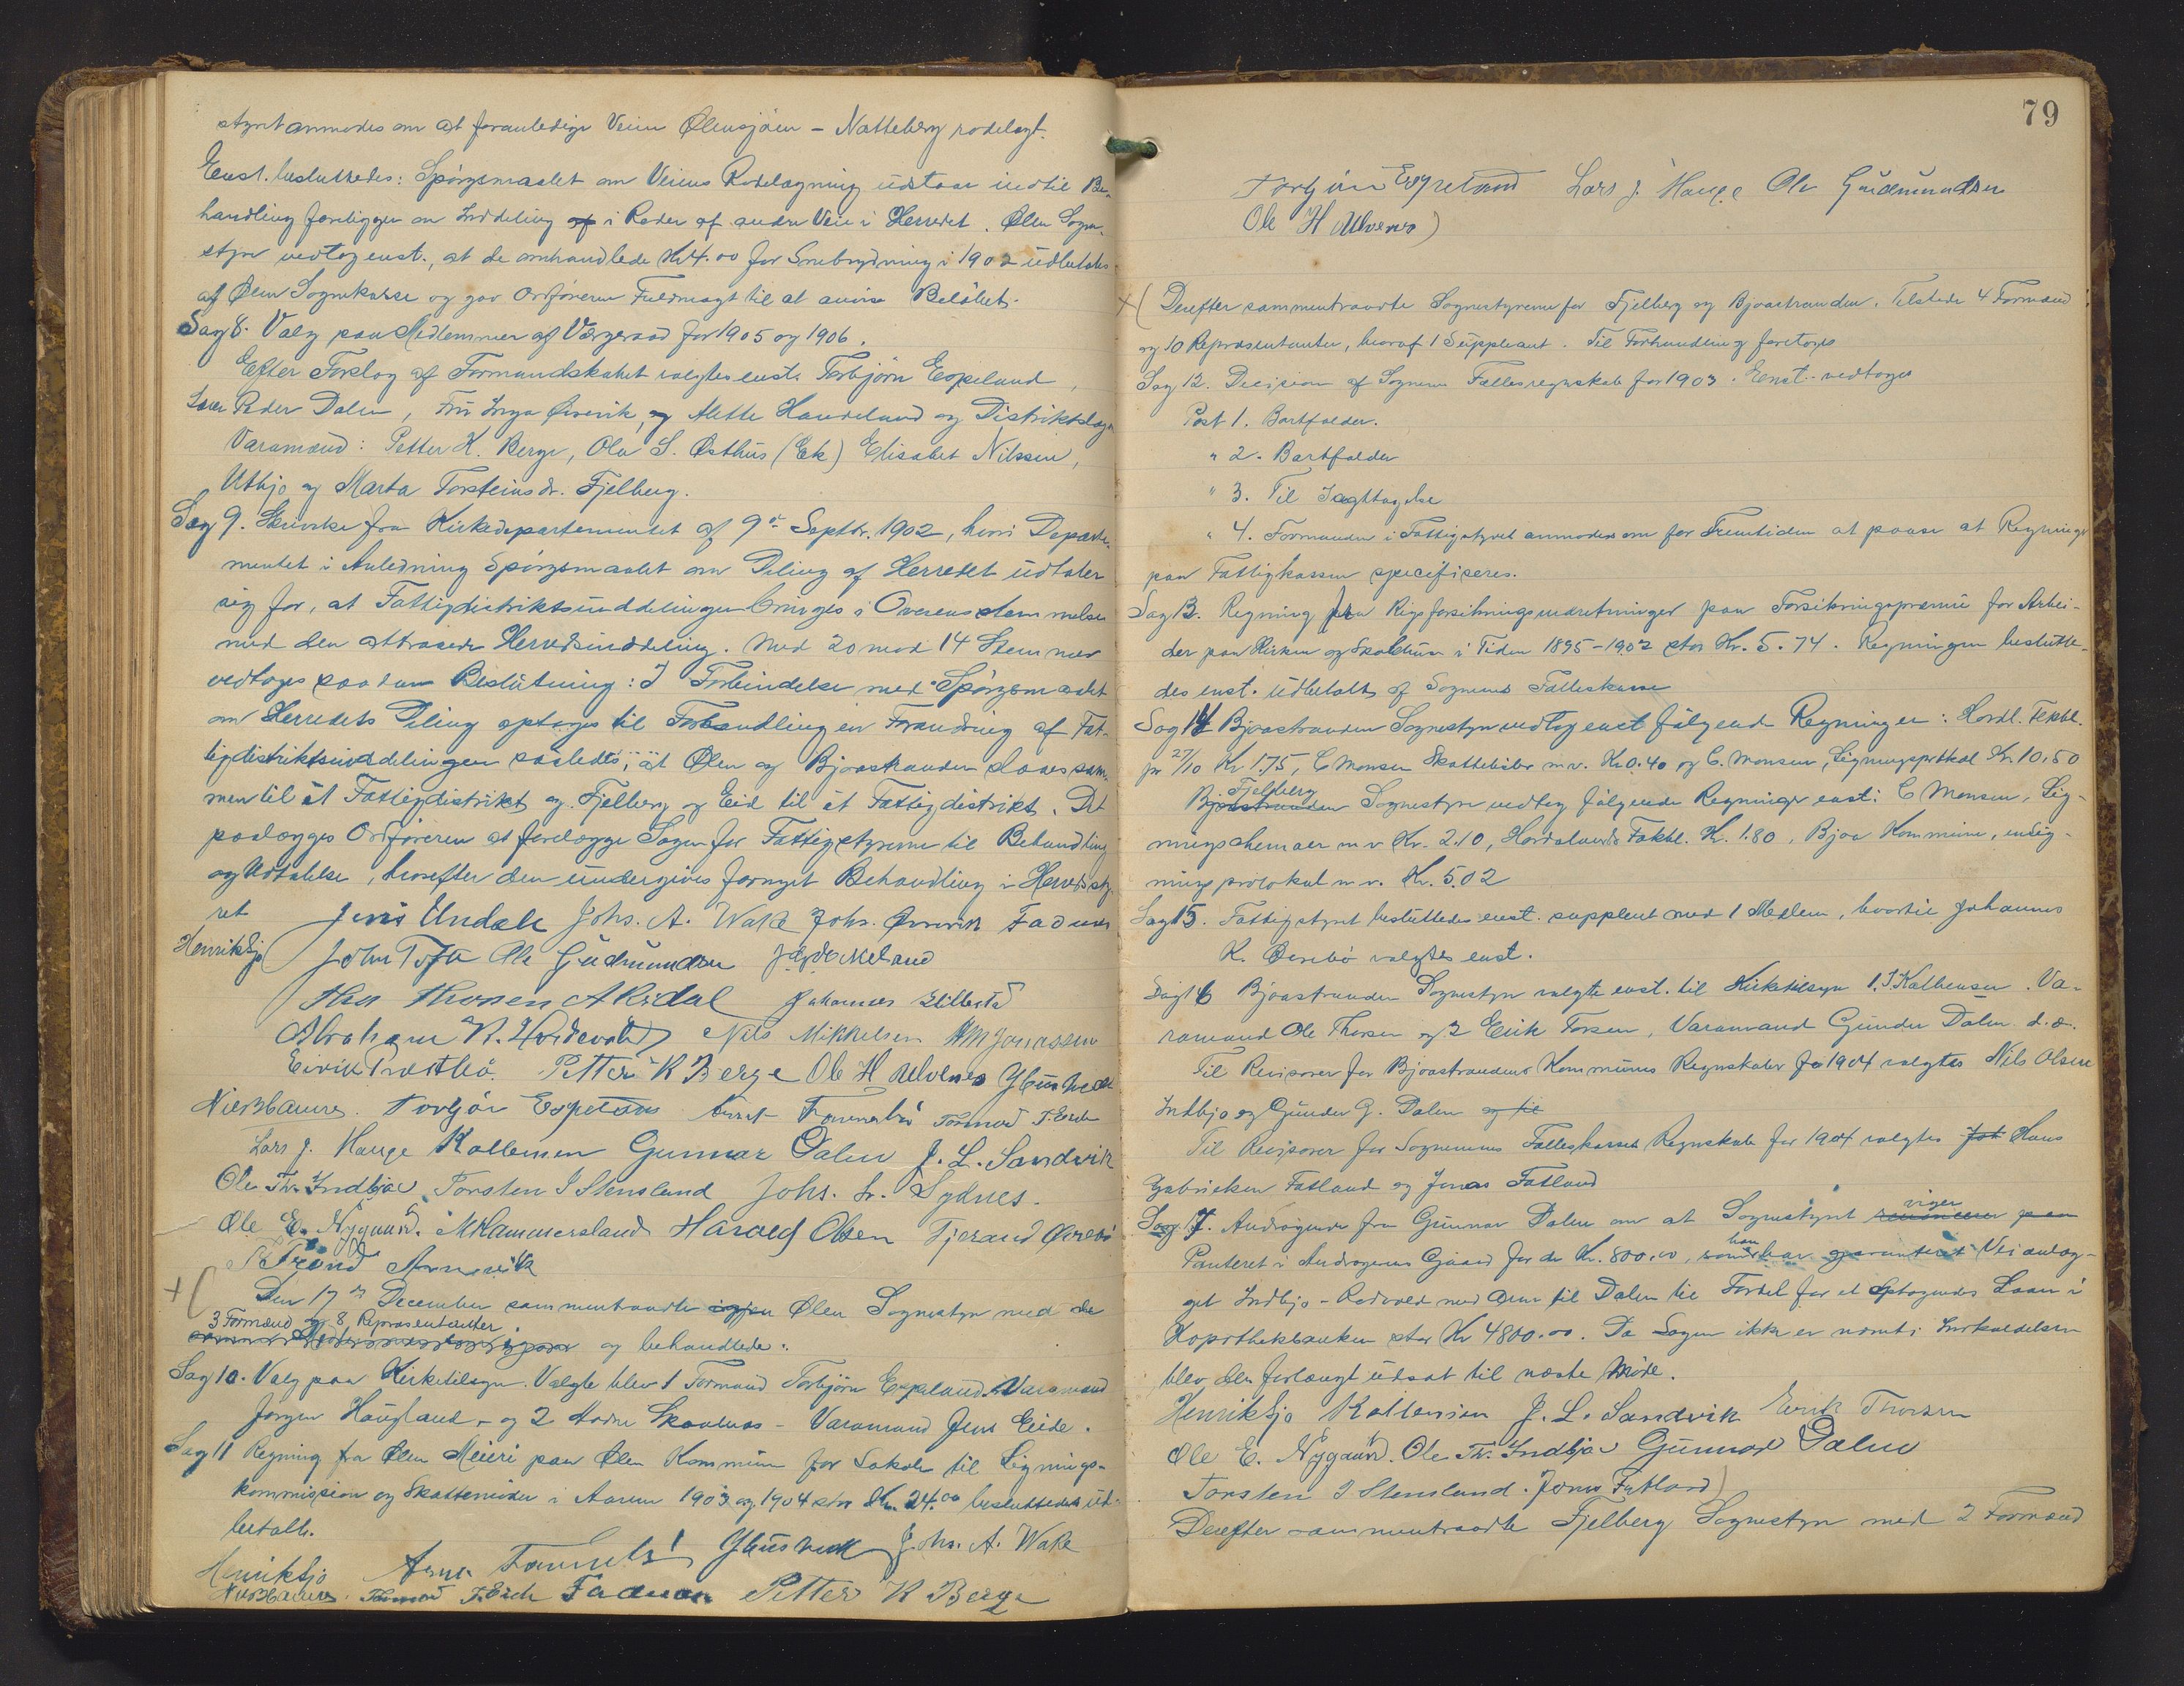 styret anmodes om at foranledige Veien Ølensjøen - Natteberg rodelagt.
Enst. besluttedes: Spørgsmaalet om Veiens Rodelægning udstaar indtil Be-
handling foreligger om Inddeling af i Roder af andre Veie i Herredet. Ølen Sogne-
styre vedtog enst., at de omhandlede Kr 4.00 for Snebrydning i 1902 udbetales
af Ølen Sognekasse og gav Ordføreren Fuldmagt til at anvise Beløbet.
Sag 8. Valg paa Medlemmer af Værgeraad for 1905 og 1906.
Efter Forslag af Formandskabet valgtes enst. Torbjørn Espeland,
Peder Dalen, Fru Inga Øvrevik, og Mette Handeland og Distriktslægen
Varamænd: Petter K. Berge, Ola S. Østhus (Ek) Elisabet Nilssen,
Utbjo og Marta Torsteinsdr. Fjelberg.
Sag 9. Skrivelse fra Kirkedepartementet af 9de Septbr. 1902, hvori Departe-
mentet i Anledning Spørgsmaalet om Deling af Herredet udtaler
sig for, at Fattigdistriktsinddelingen bringes i Overensstemmelse
med den attraaede Herredsinddeling. Med 20 mod 14 Stemmer
vedtoges saadan Beslutning: I Forbindelse med Spørgsmaalet
om Herredets Deling optages til Forhandling en Forandring af Fat-
tigdistriktsinddelingen saaledes, at Ølen og Bjoastranden slaaes sam-
men til ét Fattigdistrikt og Fjelberg og Eid til ét Fattigdistrikt. Det
paalægges Ordføreren at forelægge Sagen for Fattigstyrerne til Behandling
og Udtalelse, hvorefter den undergives fornyet Behandling i Herredssty-
ret Jens Undal Johs. A. Wake Johs. Øvrevik Fadnes
Henrik Bjo John Tofte Ole Gudmundsen
Thor Thorsen A Rødal Johannes
Abraham Nils Mikkelsen
Eirik Petter K Berge Ole H Ulvenes
Torbjør Espeland Tormod T. Eide
Lars J. Hauge Kallemsen Gunnar Dalen J. L. Sandvik
Ole Th. Indbjo Torsten I Stensland Johs. Sydnes.
Ole E. Nygaard. M Kammersland Harald Olsen Tjerand Øvrebø
Trond Arnevik
+( Den 17de December sammentraadte igjen Ølen Sognestyre med de
3 Formænd og 8 Repræsentanter
og behandlede:
Sag 10. Valg paa Kirketilsyn. Valgte blev 1 Formand Torbjørn Espeland. Varamand
Jørgen Haugland, og 2 Skaalnes - Varamand Jens Eide.
Sag 11 Regning fra Ølen Meieri paa Ølen Kommune for Lokale til Lignings-
kommission og Skattemøder i Aarene 1903 og 1904 stor Kr. 24.00 besluttedes ud-
betalt.
Henrik Bjo Johs. A. Wake
T. Eide Fadnes Petter K Berge
79
Torbjørn Espeland Lars J. Hauge Ole Gudmundsen
Ole H Ulvenes)
+( Derefter sammentraadte Sognestyrerne for Fjelberg og Bjoastranden. Tilstede 4 Formænd
og 10 Repræsentanter, hvoraf 1 Suppleant. Til Forhandling foretoges
Sag 12. Decision af Sognenes Fællesregnskab for 1903. Enst. vedtoges
Post 1. Bortfalder.
" 2. Bortfalder
" 3. Til Iagttagelse
" 4. Formanden i Fattigstyret anmodes om for Fremtiden at paase at Regninger
paa Fattigkassen specificeres.
Sag 13. Regning fra Rigsforsikringsindretninger paa Forsikringspræmie for Arbei-
der paa Kirken og Skolehuse i Tiden 1895-1902 stor Kr. 5.74. Regningen beslutte-
des enst. udbetalt af Sognenes Fælleskasse
Sag 14 Bjoastranden Sognestyre vedtog enst følgende Regninger: Hordl. Fektbl.
pr 27/10 Kr. 1.75, C Monsen Skattelister m.v. Kr. 0.40 og C. Monsen, Ligningsprotkol Kr. 10.50
Fjelberg
Bjoastranden Sognestyre vedtog følgende Regninger enst: C Monsen, Lig-
ningschemaer m v Kr. 2.10, Hordalands Folkbl. Kr. 1.80, Bjoa Kommune,
ningsprotokol m v. Kr. 5.02
Sag 15. Fattigstyret besluttedes enst. supplert med 1 Medlem, hvortil Johannes
K. Øvrebø valgtes enst.
Sag 16 Bjoastranden Sognestyre valgte enst. til Kirketilsyn 1. J. Kallemsen. Va-
ramand Ole Thorsen og 2 Erik Torsen, Varamand Gunder Dalen d. æ.
Til Revisorer for Bjoastrandens Kommunes Regnskaber for 1904 valgtes Nils Olsen
Indbjo og Gunder G. Dalen og til
Til Revisorer for Sognenes Fælleskasses Regnskab for 1904 valgtes Joh Hans
Gabrielsen Fatland og Jonas Fatland
viger
Sag 17. Andragende fra Gunnar Dalen om at Sognestyret renoncerer paa
han
Panteret i Andragerens Gaard for de Kr. 800.00, som har garanteret Veianlæg-
get Indbjo - Rødvold med Arm til Dalen til Fordel for et optagendes Laan i
Hypothekbanken stor Kr 4800.00. Da Sagen ikke er nævnt i Indkaldelsen
blev den forlangt udsat til næste Møde.
Henrik Bjo Kallemsen J. L. Sandvik Erik Thorsen
Ole E. Nygaard. Ole Th. Indbjo Gunnar Dalen
Torsten I Stensland. Jonas Fatland)
Derefter sammentraadte Fjelberg Sognestyre med 2 Formænd